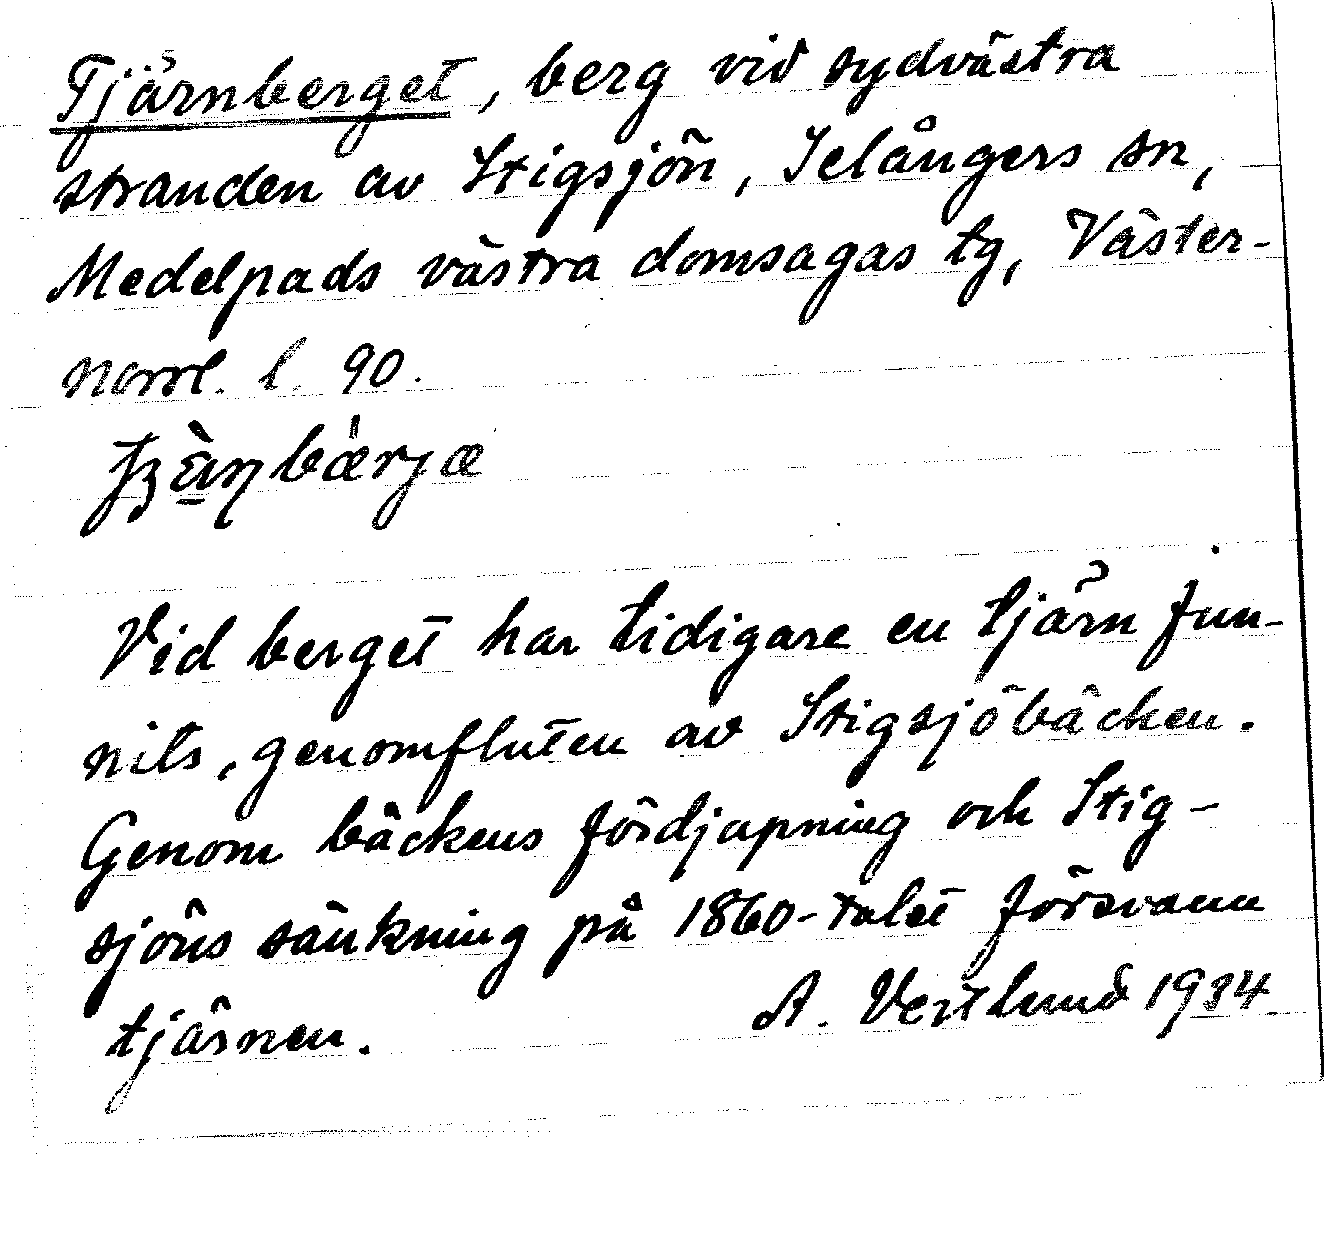 Tjärnberget, berg vid sydvästra
stranden av Stigsjön, Selångers sn,
Medelpads västra domsagas tg, Väster-
norrl. l. 90.
Vid berget har tidigare en tjärn fun-
nits, genomfluten av Stigsjöbäcken.
Genom bäckens fördjupning och Stig-
sjöns sänkning på 1860-talet försvann
tjärnen. A. Vestlund 1934